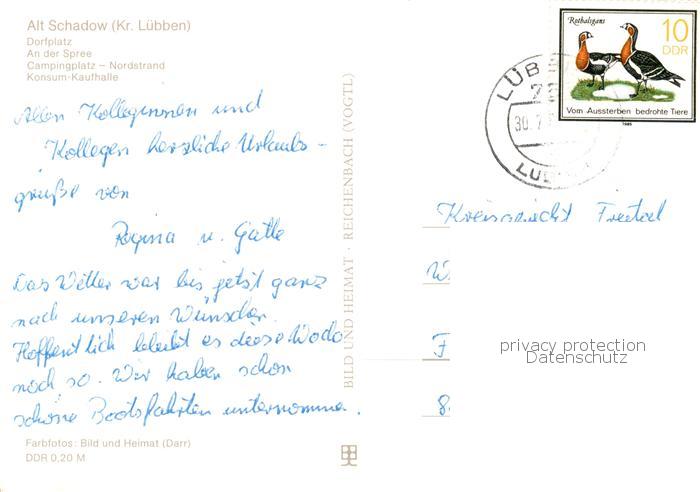 Alt Schadow (Kr. Lübben)
Dorfplatz
An der Spree
Campingplatz – Nordstrand
Konsum-Kaufhalle
Allen Kolleginnen und
Kollegen herzliche Urlaubs-
grüße von
Regina u. Gatte
Das Wetter war bis jetzt ganz
nach unseren Wünschen.
Hoffentlich bleibt es diese Woche
noch so. Wir haben schon
schöne Bootsfahrten unternommen.
Farbfotos: Bild und Heimat (Darr)
DDR 0,20 M
BILD UND HEIMAT · REICHENBACH (VOGTL)
Rothalsgans
10
DDR
Vom Aussterben bedrohte Tiere
1985
LÜB
30.7
Kreisgericht Freital
W
F
8
privacy protection
Datenschutz